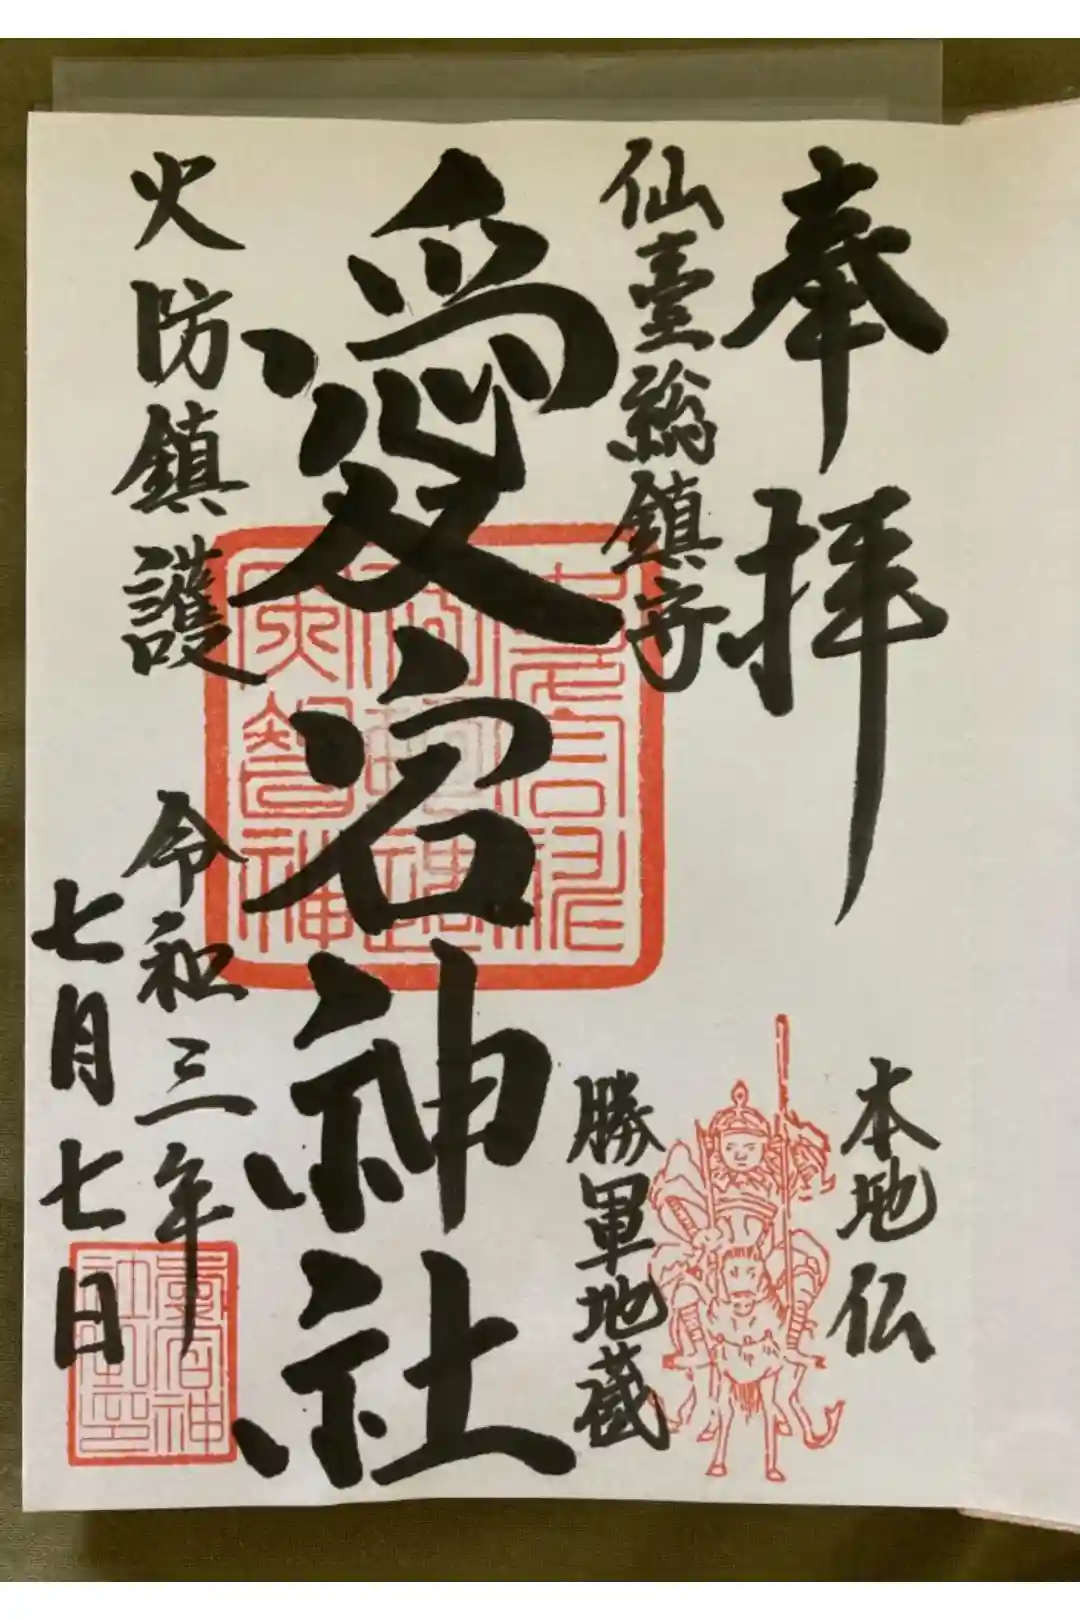 奉拝
仙臺総鎮守
本地仏
勝軍地蔵
愛宕神社
火防鎮護
令和三年
七月七日